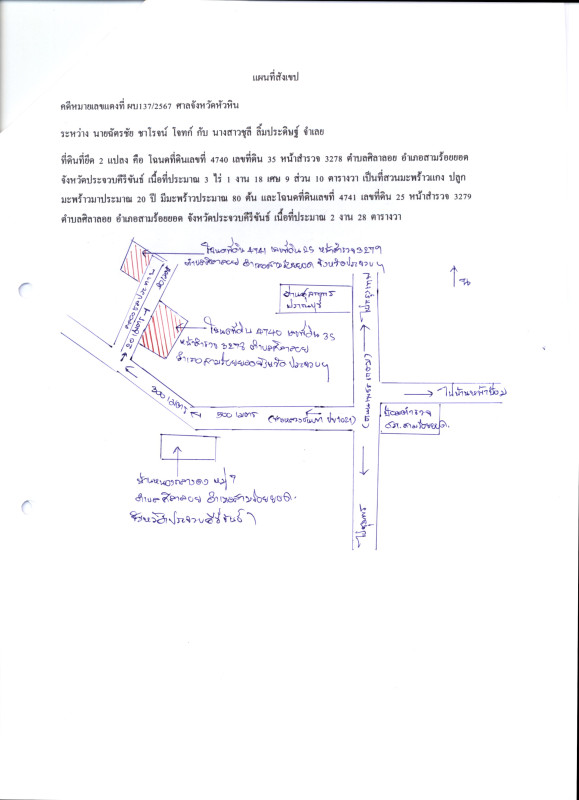 แผนที่สังเขป
คดีหมายเลขแดงที่ ผบ137/2567 ศาลจังหวัดหัวหิน
ระหว่าง นายฉัตรชัย ชาโรจน์ โจทก์ กับ นางสาวชุลี ลิ้มประดิษฐ์ จำเลย
ที่ดินที่ยึด 2 แปลง คือ โฉนดที่ดินเลขที่ 4740 เลขที่ดิน 35 หน้าสำรวจ 3278 ตำบลศิลาลอย อำเภอสามร้อยยอด
จังหวัดประจวบคีรีขันธ์ เนื้อที่ประมาณ 3 ไร่ 1 งาน 18 เศษ 9 ส่วน 10 ตารางวา เป็นที่สวนมะพร้าวแกง ปลูก
มะพร้าวมาประมาณ 20 ปี มีมะพร้าวประมาณ 80 ต้น และโฉนดที่ดินเลขที่ 4741 เลขที่ดิน 25 หน้าสำรวจ 3279
ตำบลศิลาลอย อำเภอสามร้อยยอด จังหวัดประจวบคีรีขันธ์ เนื้อที่ประมาณ 2 งาน 28 ตารางวา
โฉนดที่ดิน 4741 เลขที่ดิน 25 หน้าสำรวจ 3279
ตำบลศิลาลอย อำเภอสามร้อยยอด จังหวัดประจวบฯ
น
คลองชลประทาน
โฉนดที่ดิน 4740 เลขที่ดิน 35
หน้าสำรวจ 3278 ตำบลศิลาลอย
อำเภอสามร้อยยอด จังหวัด ประจวบฯ
(ถนนเพชรเกษม)
300 เมตร
900 เมตร
ป้อมตำรวจ
สภ.สามร้อยยอด
บ้านหนองกลางดง หมู่ 7
ตำบลศิลาลอย อำเภอสามร้อยยอด
จังหวัดประจวบคีรีขันธ์